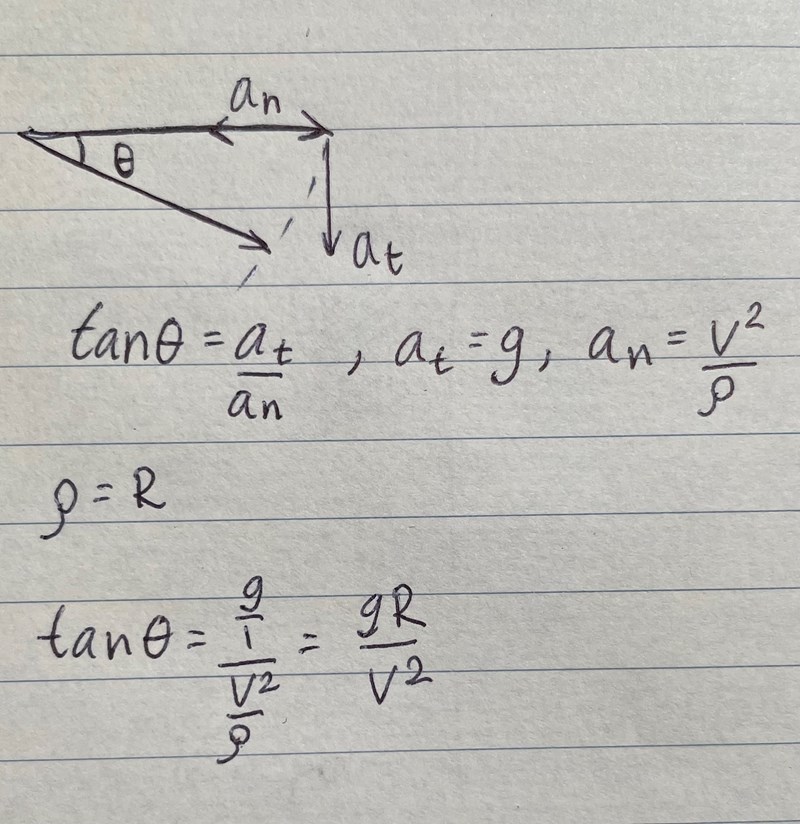 aₙ
θ
aₜ
tanθ = aₜ/aₙ , aₜ = g, aₙ = V²/ρ
ρ = R
tanθ = (g/1)/(V²/ρ) = gR/V²